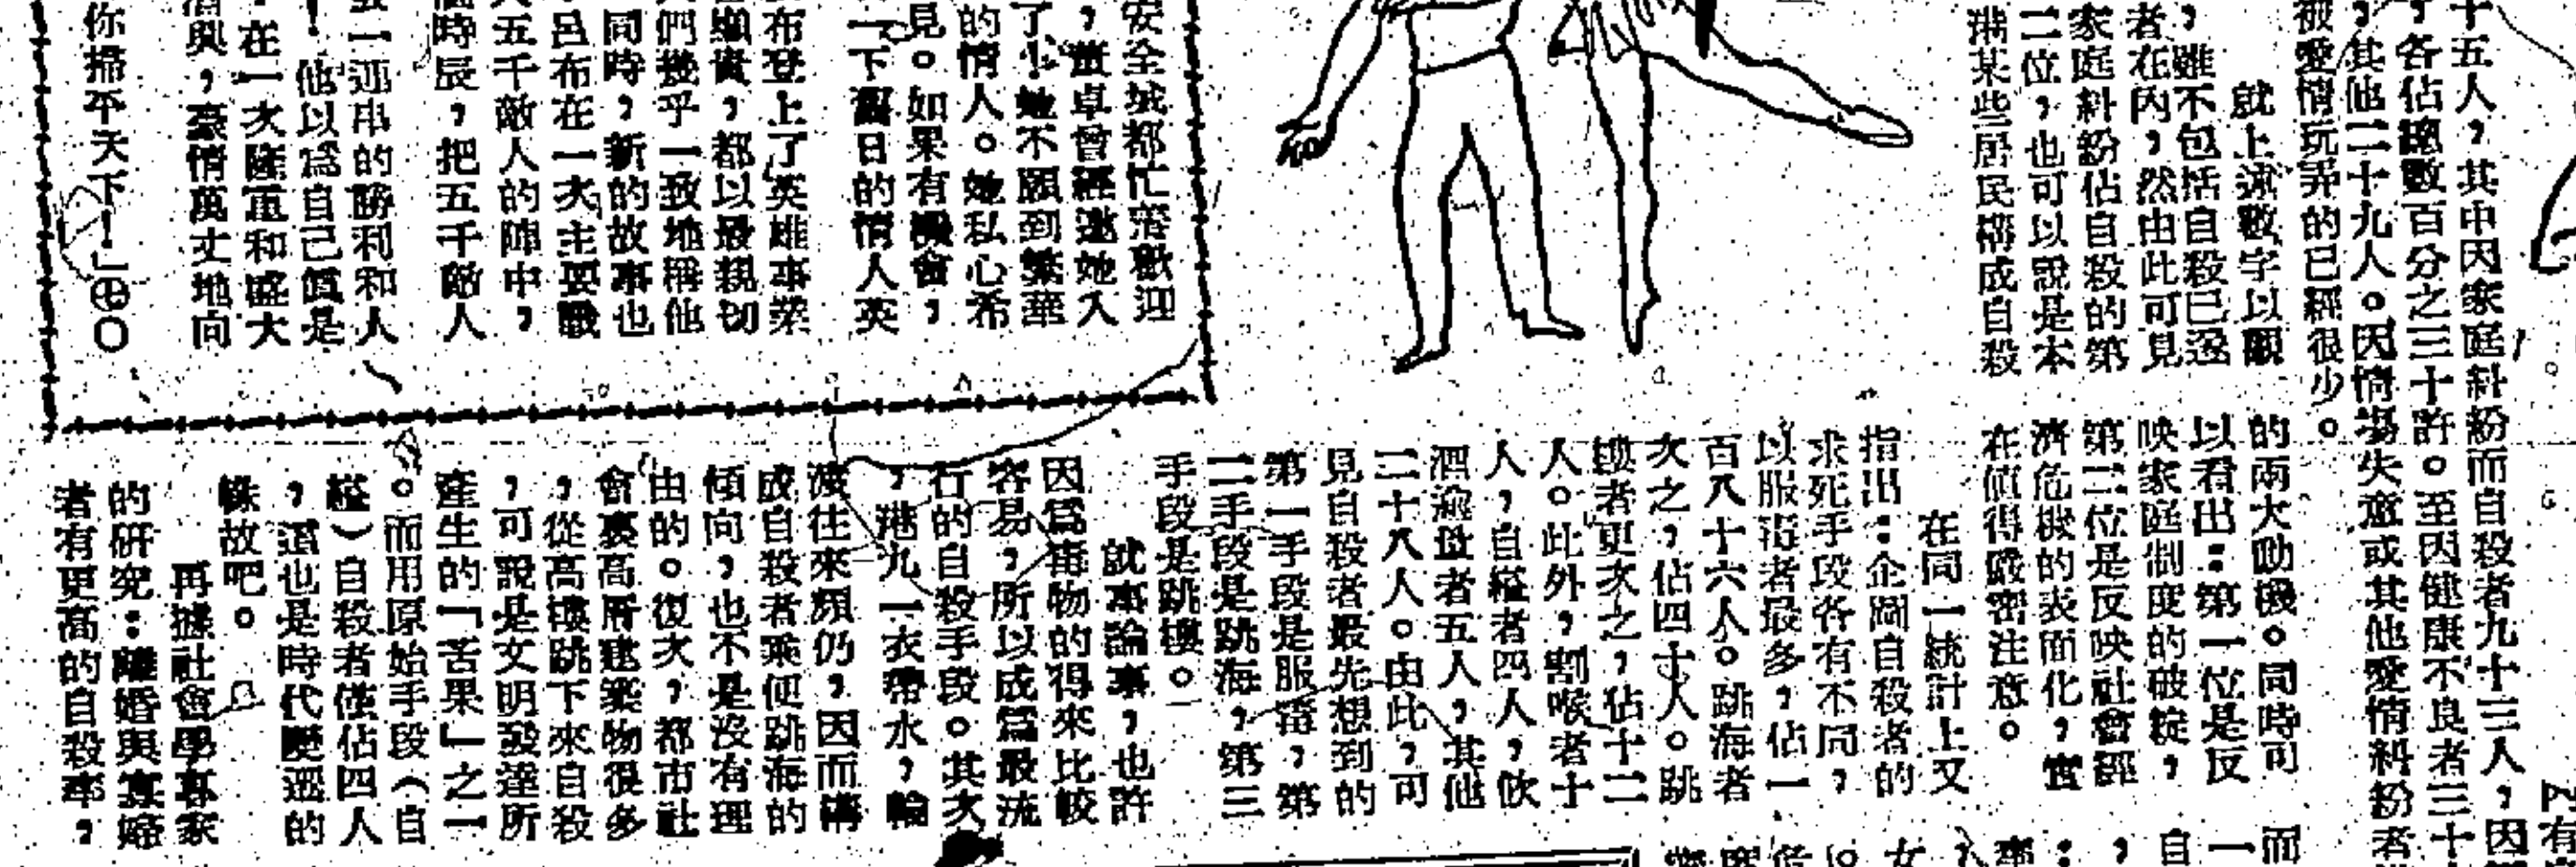 十五人，其中因家庭糾紛而自殺者九十三人，因
，各佔總數百分之三十許。至因健康不良者三十
，其他二十九人。因情場失意或其他愛情糾紛者
被愛情玩弄的已經很少。
就上述數字以觀
，雖不包括自殺已遂
者在內，然由此可見
家庭糾紛佔自殺的第
二位，也可以說是本
港某些居民構成自殺
的兩大動機。同時可
以看出：第一位是反
映家庭制度的破綻，
第二位是反映社會經
濟危機的表面化，實
在值得嚴密注意。
在同一統計上又
指出：企圖自殺者的
求死手段各有不同，
以服毒者最多，佔一
百八十六人。跳海者
次之，佔四十人。跳
樓者更次之，佔十二
人。此外，割喉者十
人，自縊者四人，飲
酒逾量者五人，其他
二十八人。由此，可
見自殺者最先想到的
第一手段是服毒，第
二手段是跳海，第三
手段是跳樓。
就事論事，也許
因爲毒物的得來比較
容易，所以成爲最流
行的自殺手段。其次
，港九一衣帶水，輪
渡往來頻仍，因而構
成自殺者乘便跳海的
傾向，也不是沒有理
由的。復次，都市社
會裏高層建築物很多
，從高樓跳下來自殺
，可說是文明發達所
產生的「苦果」之一
。而用原始手段（自
縊）自殺者僅佔四人
，這也是時代變遷的
緣故吧。
再據社會學專家
的研究：離婚與寡婦
者有更高的自殺率，
安全城都忙着歡迎
，董卓曾經邀她入
了，她不願到繁華
的情人。她私心希
見。如果有機會，
一下舊日的情人英
布登上了英雄事業
顯貴，都以最親切
們幾乎一致地稱他
同時，新的故事也
呂布在一次主要戰
五千敵人的陣中，
時辰，把五千敵人
一連串的勝利和人
！他以爲自己眞是
在一次隆重和盛大
興，豪情萬丈地向
你掃平天下！」㊉〇